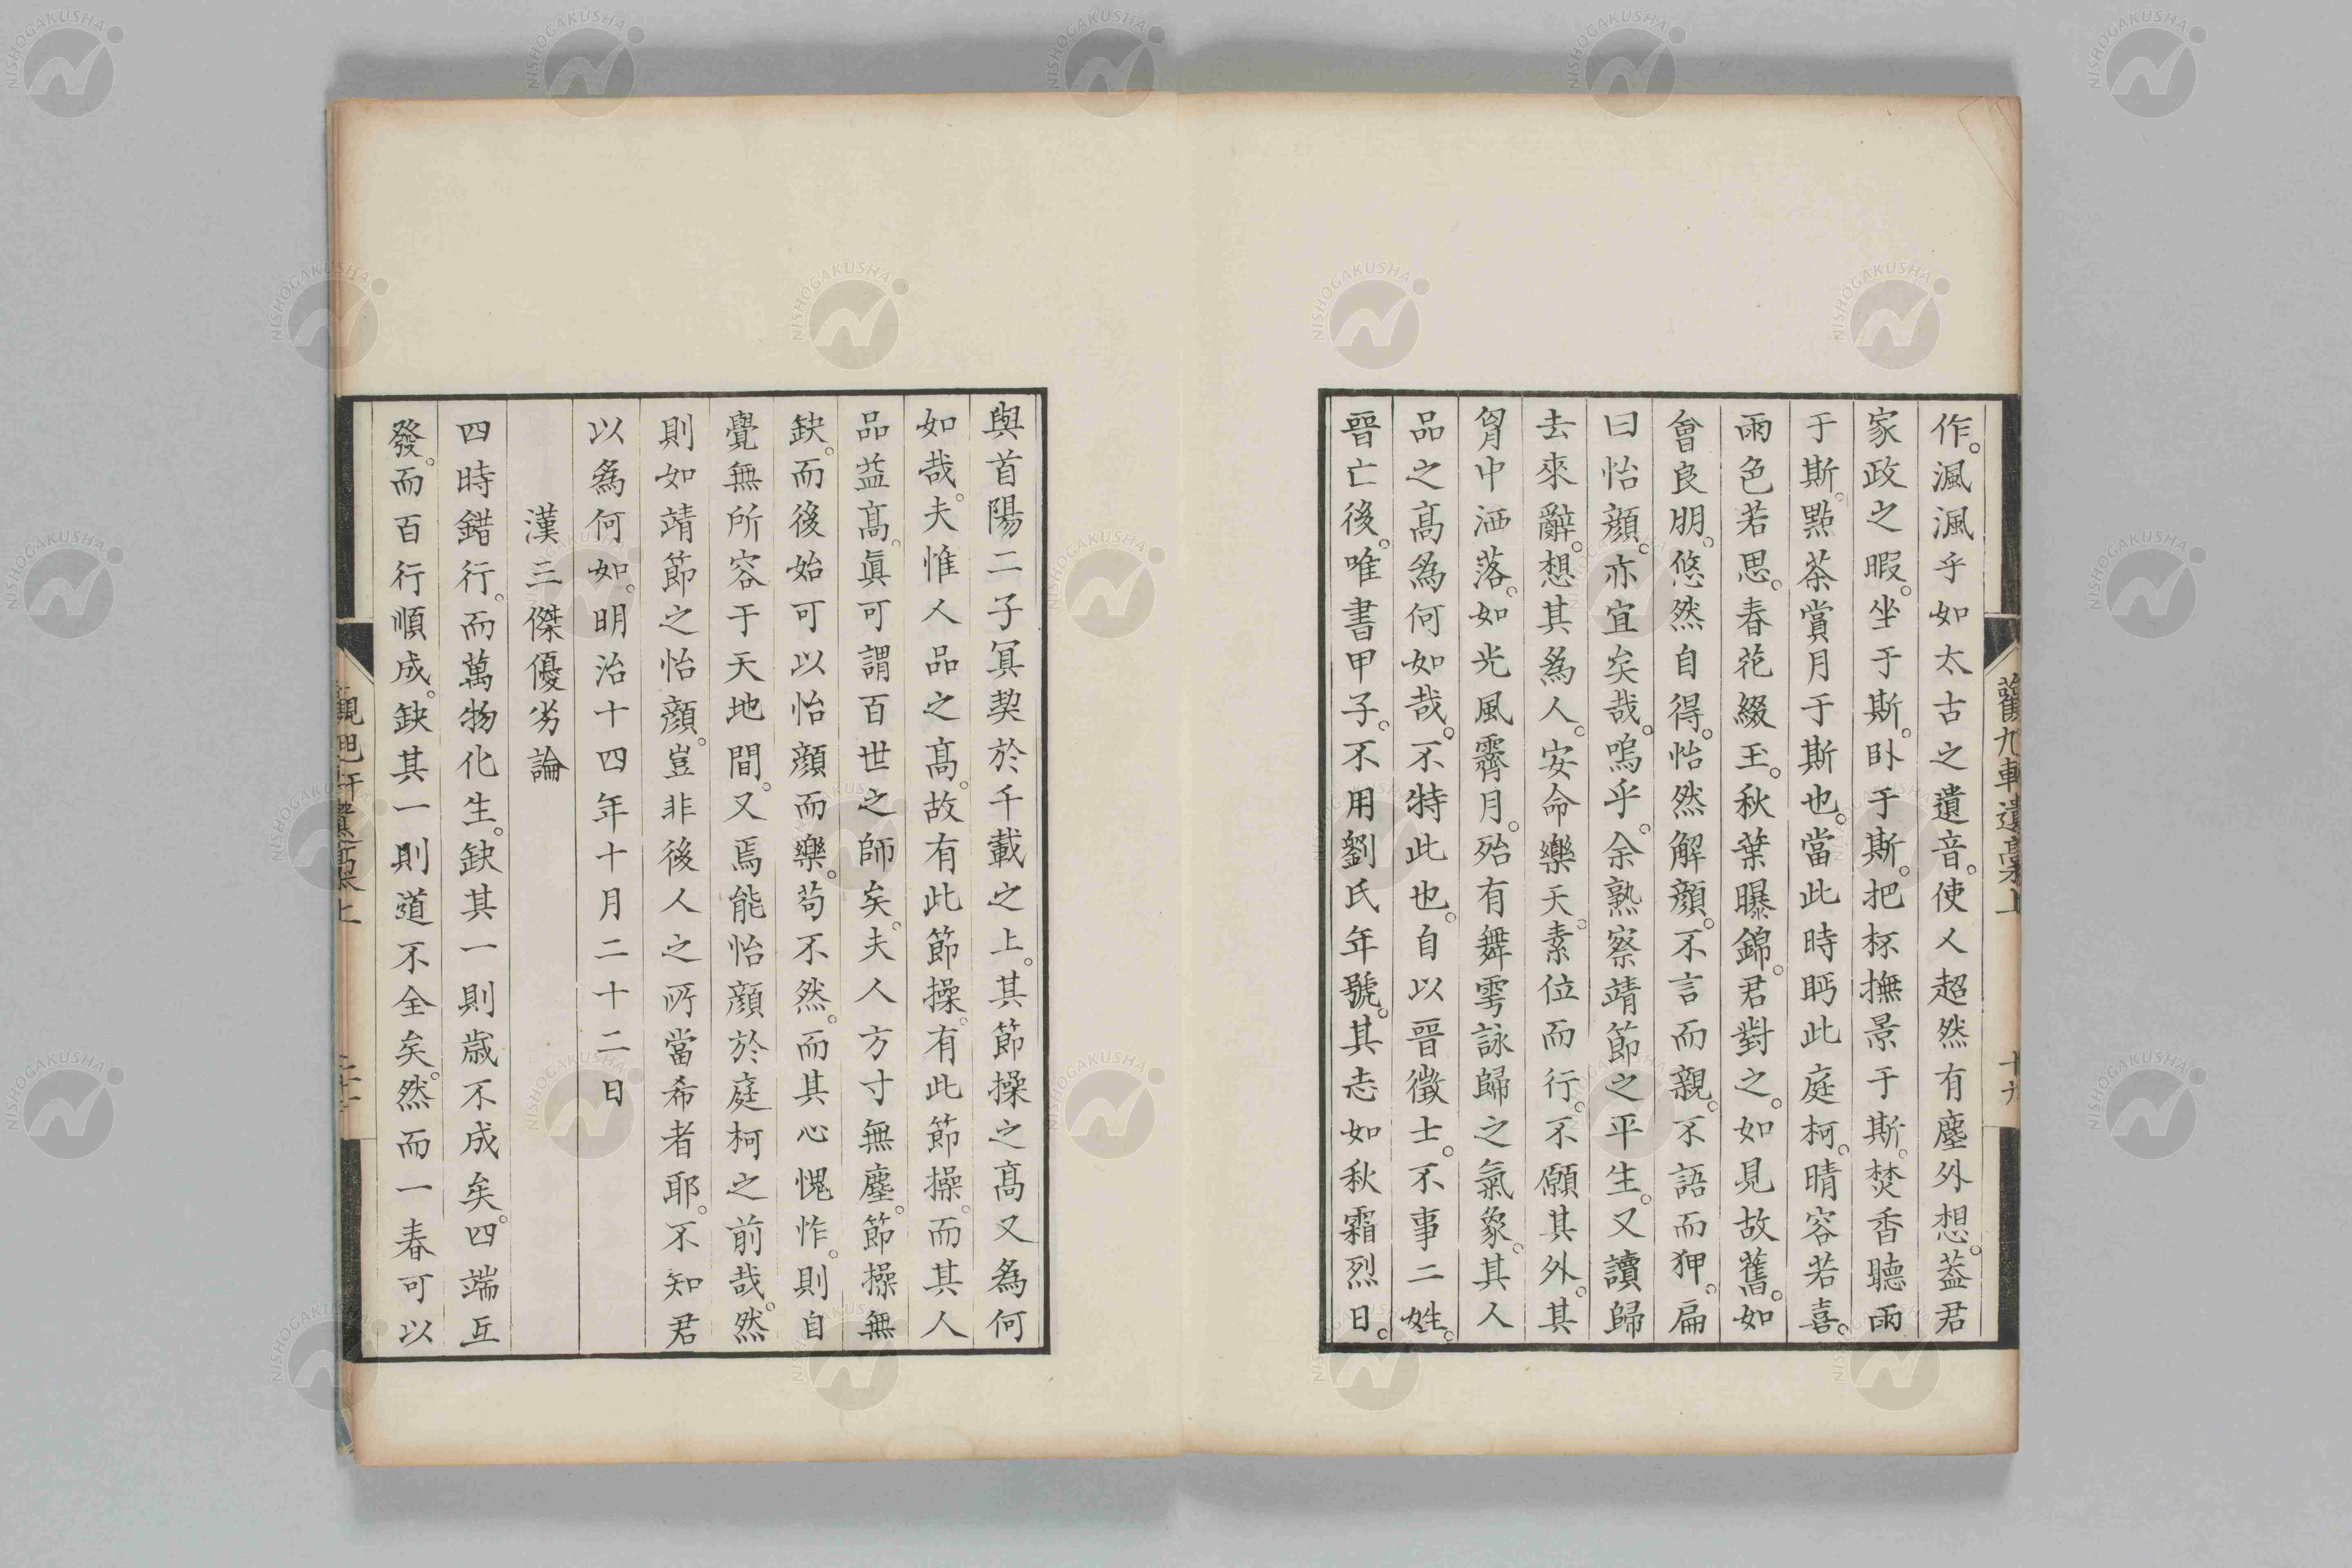 作。渢渢乎如太古之遺音。使人超然有塵外想。葢君
家政之暇。坐于斯。卧于斯。把杯撫景于斯。焚香聽雨
于斯。點茶賞月于斯也。當此時眄此庭柯。晴容若喜。
雨色若思。春花綴玉。秋葉曝錦。君對之。如見故舊。如
會良朋。悠然自得。怡然解顔。不言而親。不語而狎。扁
曰怡顔。亦宜矣哉。嗚乎。余熟察靖節之平生。又讀歸
去來辭。想其爲人。安命樂天。素位而行。不願其外。其
胷中洒落。如光風霽月。殆有舞雩詠歸之氣象。其人
品之髙爲何如哉。不特此也。自以晉徵士。不事二姓。
晉亡後。唯書甲子。不用劉氏年號。其志如秋霜烈日。
與首陽二子冥契於千載之上。其節操之髙又爲何
如哉。夫惟人品之髙。故有此節操。有此節操。而其人
品益髙。眞可謂百世之師矣。夫人方寸無塵。節操無
缺。而後始可以怡顔而樂。苟不然。而其心愧怍。則自
覺無所容于天地間。又焉能怡顔於庭柯之前哉。然
則如靖節之怡顔。豈非後人之所當希者耶。不知君
以爲何如。明治十四年十月二十二日
漢三傑優劣論
四時錯行。而萬物化生。缺其一則歲不成矣。四端互
發。而百行順成。缺其一則道不全矣。然而一春可以